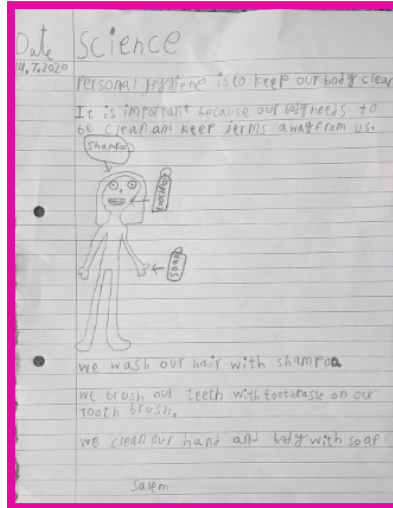 Date
Science
14.7.2020
Personal Hygiene is to keep our body clean
It is important because our body needs to
be clean and keep jerms away from us.
Shampoo
Soap
we wash our hair with shampoo
we brush our teeth with toothpaste on our
tooth brush.
we clean our hand and body with soap
Salem